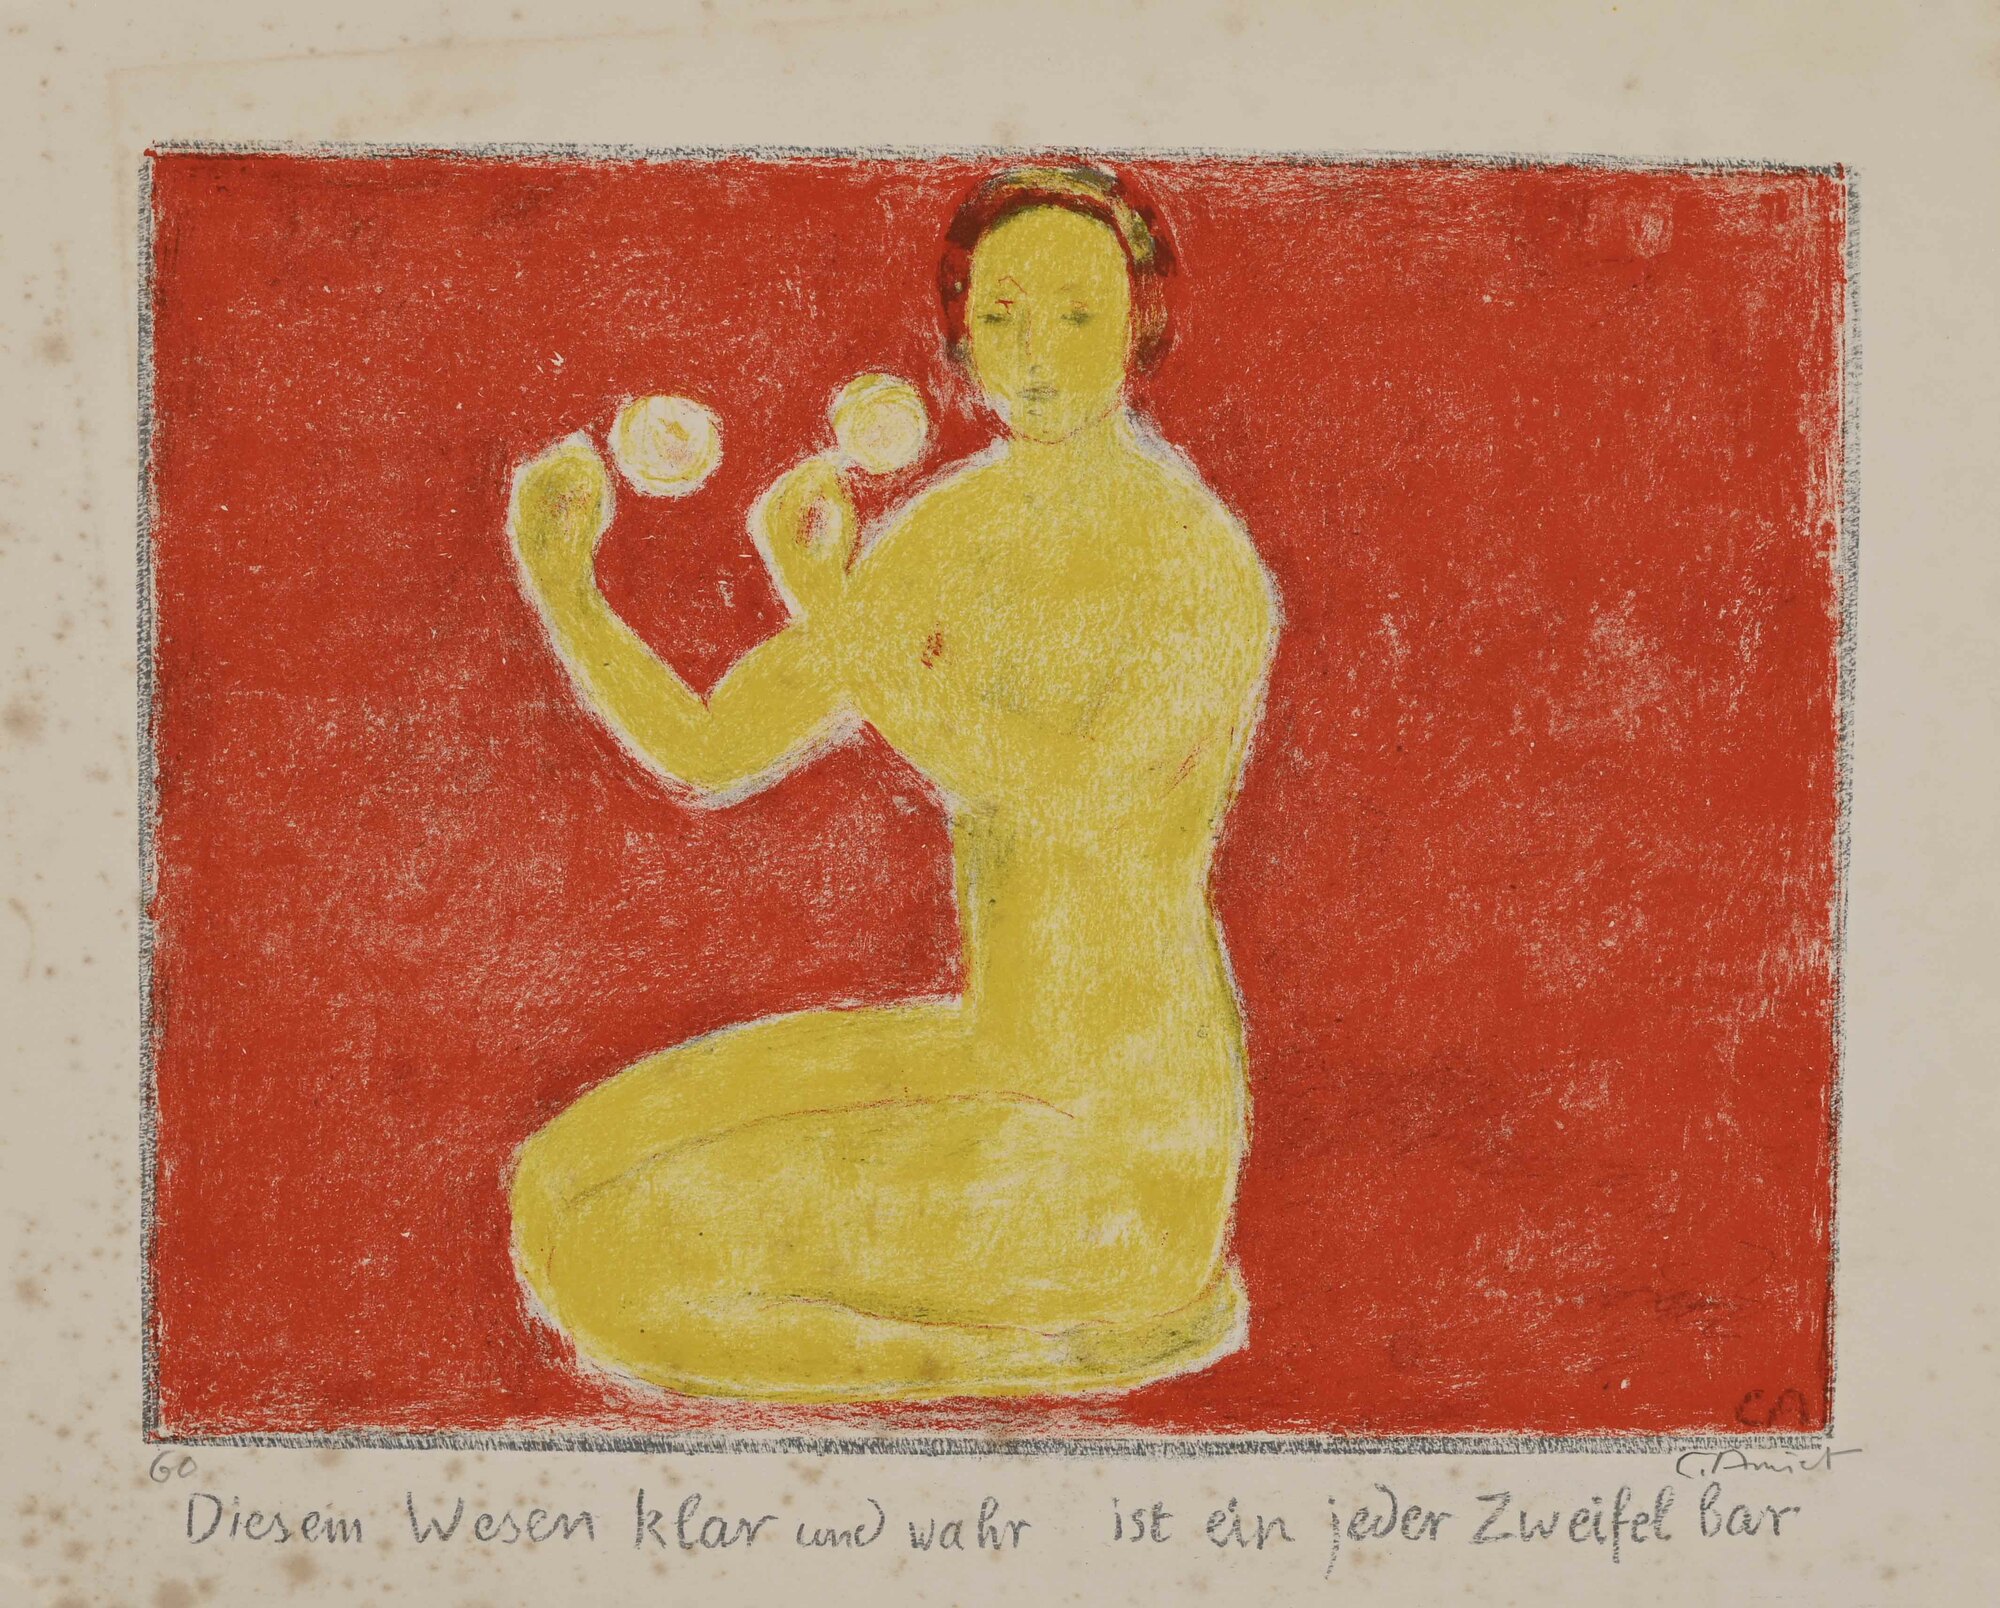 CA
60
C. Amiet
Diesem Wesen klar und wahr ist ein jeder Zweifel bar